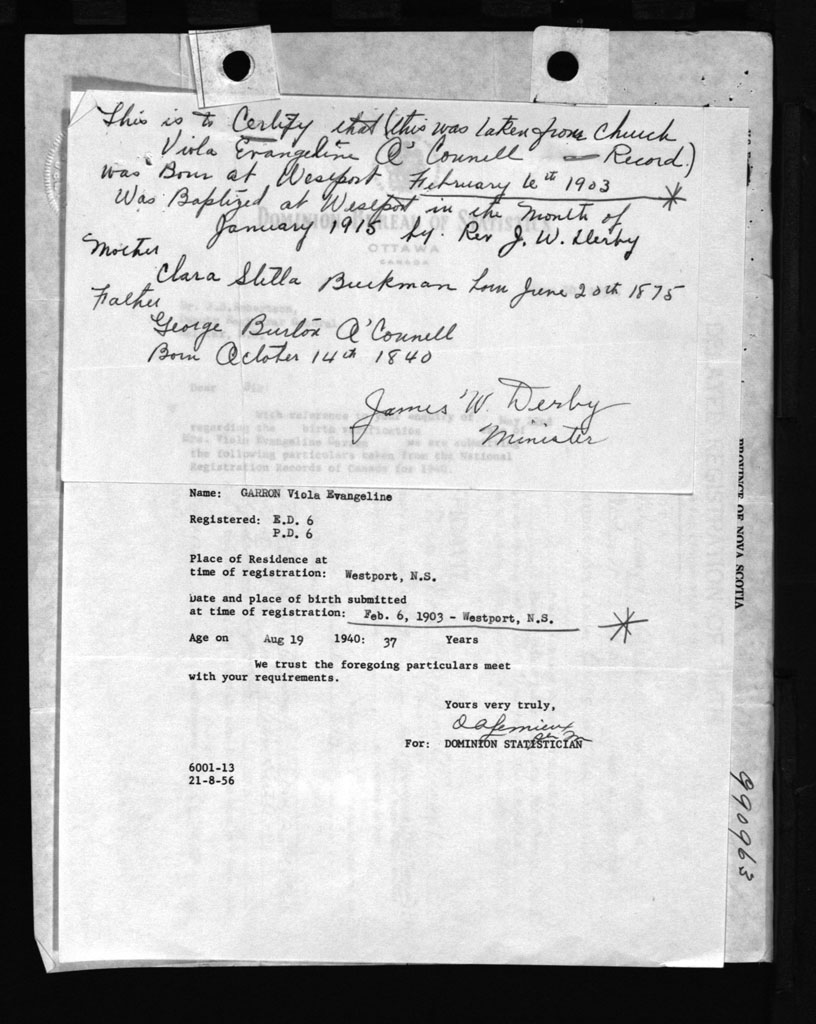 This is to Certify that (this was taken from Church
Viola Evangeline O'Connell — Record.)
was Born at Westport February 6th 1903 *
Was Baptized at Westport in the Month of
January 1915 by Rev J. W. Derby
DOMINION BUREAU OF STATISTICS
OTTAWA
CANADA
Mother
Clara Stella Buckman born June 20th 1875
Father
George Burton O'Connell
Born October 14th 1840
James W. Derby
Minister
Dear Sir
With reference to your enquiry of May
regarding the birth verification of
Mrs. Viola Evangeline Garron we are
the following particulars taken from the National
Registration Records of Canada for 1940.
Name: GARRON Viola Evangeline
Registered: E.D. 6
P.D. 6
Place of Residence at
time of registration: Westport, N.S.
Date and place of birth submitted
at time of registration: Feb. 6, 1903 - Westport, N.S. *
Age on Aug 19 1940: 37 Years
We trust the foregoing particulars meet
with your requirements.
Yours very truly,
For: DOMINION STATISTICIAN
6001-13
21-8-56
PROVINCE OF NOVA SCOTIA
990963